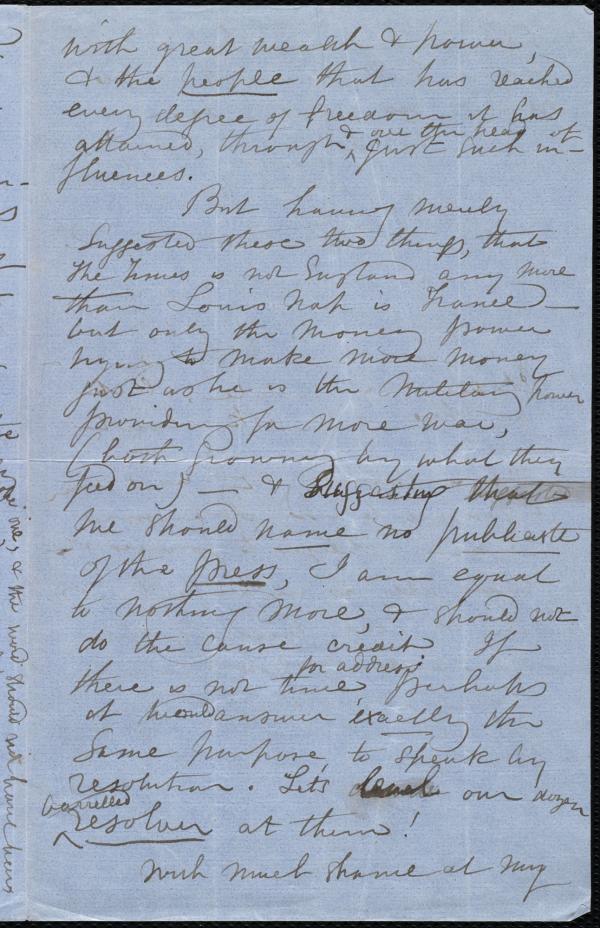 with great wealth & power,
& the people that has reached
every degree of freedom it has
attained, through, & over the head of just such in-
fluences.
But having merely
suggested these two things, that
the Times is not England any more
than Louis Nap is France —
but only the money power
trying to make more money
just as he is the Military power
providing for more war,
(both growing by what they
feed on) — & suggesting that
we should name no publicate
of the press, I am equal
to nothing more, & should not
do the cause credit. If
there is not time for address, perhaps
it would answer exactly the
same purpose, to speak by
resolution. Let's level our dozen
barrelled resolver at them!
With much shame at my
one, & the word should not have been